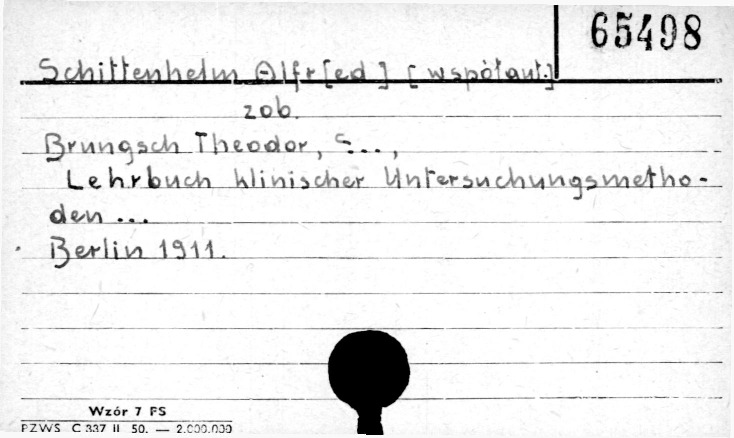 65498
Schittenhelm Alfr[ed] [współaut.]
zob.
Brungsch Theodor, S...,
Lehrbuch klinischer Untersuchungsmetho-
den ...
Berlin 1911.
Wzór 7 PS
PZWS C 337 II 50. — 2.000.000